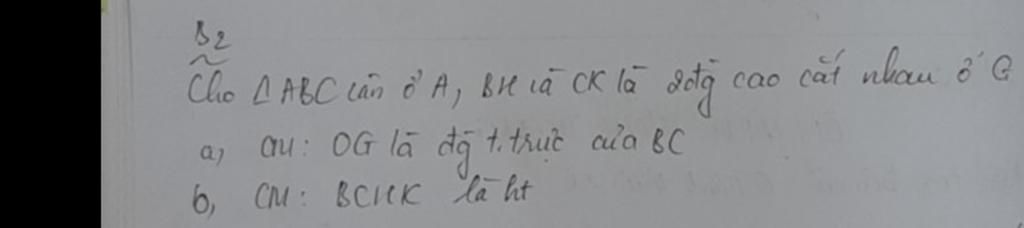 B2
Cho △ ABC cân ở A, BH và CK là 2 đg̃ cao cắt nhau ở G
a, CM: OG là đg̃ t.trực của BC
b, CM: BCHK là ht